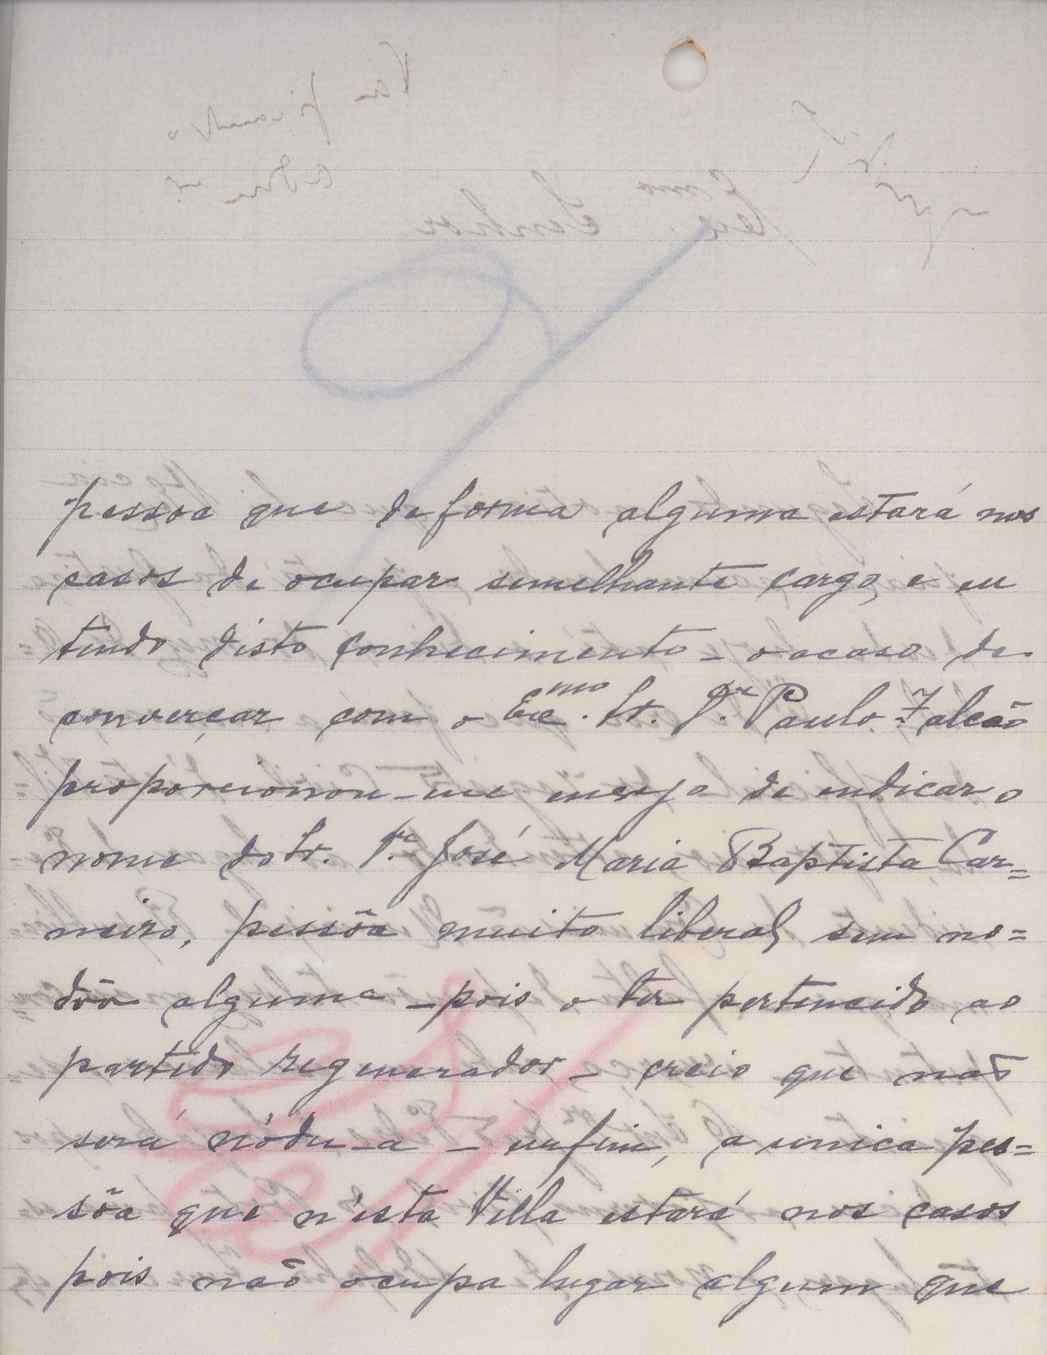 pessoa que de forma alguma estará nos
casos de ocupar semelhante cargo, e eu
tendo disto conhecimento - o acaso de
converçar com o Exc.mo Sr. Dr. Paulo Falcão
proporcionou-me ensejo de indicar o
nome do Sr. Dr. José Maria Baptista Car=
neiro, pessôa muito liberal, sem no=
dôa alguma - pois o ter pertencido ao
partido regenerador - creio que não
será nódu-a - enfim, a unica pes=
sôa que n'esta Villa estará nos casos
pois não ocupa lugar algum que